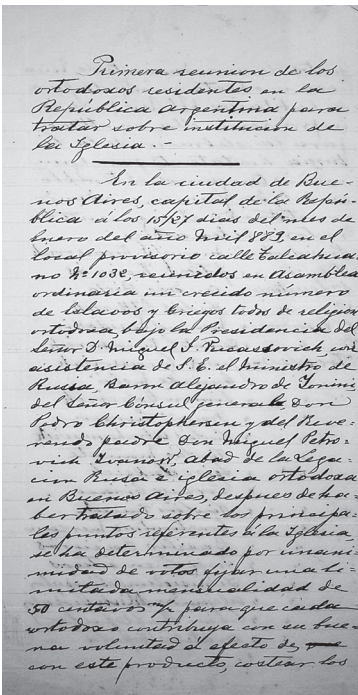 Primera reunion de los
ortodoxos residentes en la
República Argentina para
tratar sobre institucion de
la Iglesia. -
En la ciudad de Bue-
nos Aires, capital de la Repú-
blica á los 15/27 dias del mes de
Enero del año mil 889, en el
local provisorio calle Talcahua-
no Nº 1032, reunidos en Asamblea
ordinaria un crecido número
de Eslavos y Griegos todos de religion
ortodoxa, bajo la Presidencia del
Señor D. Miguel con
asistencia de S. E. el Ministro de
Rusia, Baron Alejandro de Ionini
del Señor Consul general Don
Pedro Christophersen y del Reve-
rendo padre Don Miguel Petro-
vich Ivanoff, Abad de la Lega-
cion Rusa é iglesia ortodoxa
en Buenos Aires, despues de ha-
ber tratado sobre los principa-
les puntos referentes á la Iglesia,
se ha determinado por unani-
midad de votos fijar una li-
mitada mensualidad de
50 centavos para que cada
ortodoxo contribuya con su bue-
na voluntad á efecto de,
con este producto, costear los